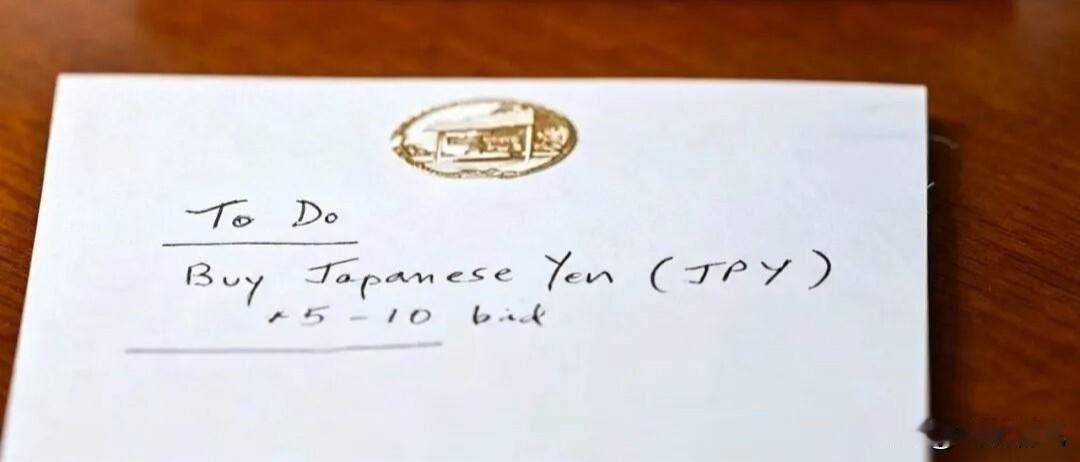 To Do
Buy Japanese Yen (JPY)
5 - 10